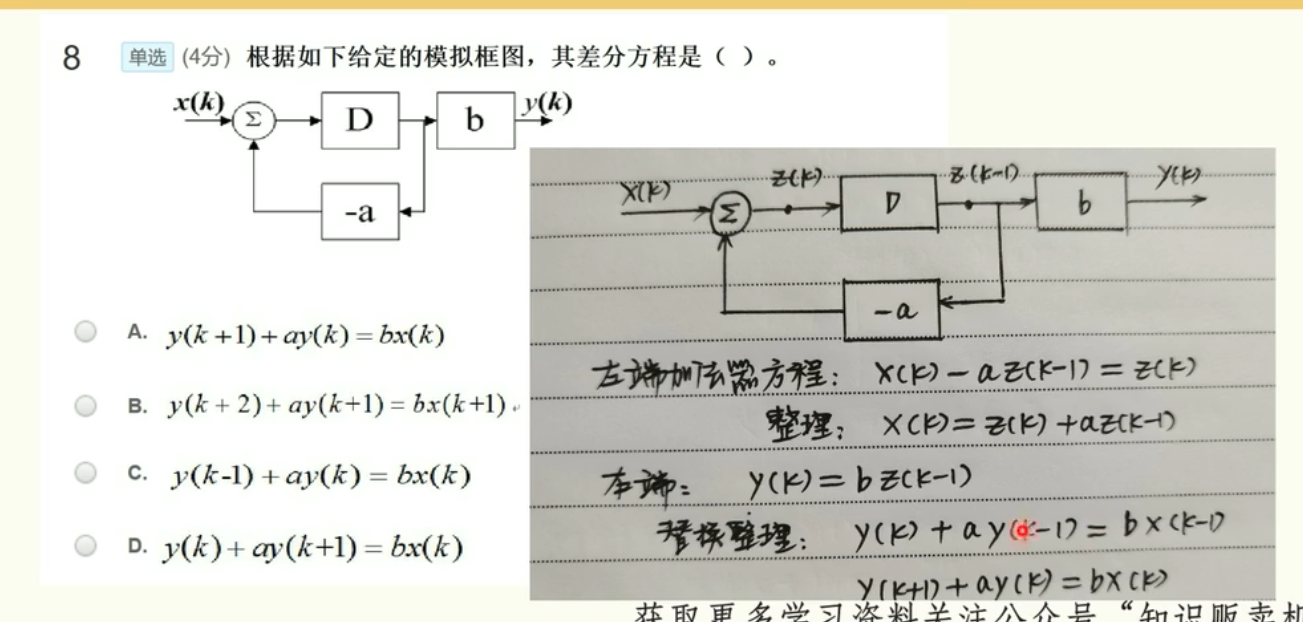 8 单选 (4分) 根据如下给定的模拟框图，其差分方程是（ ）。
x(k) Σ D b y(k)
-a
A. y(k+1)+ay(k)=bx(k)
B. y(k+2)+ay(k+1)=bx(k+1)
C. y(k-1)+ay(k)=bx(k)
D. y(k)+ay(k+1)=bx(k)
X(k) Σ z(k) D z(k-1) b y(k)
-a
左端加法器方程: x(k)-az(k-1)=z(k)
整理: x(k)=z(k)+az(k-1)
右端: y(k)=bz(k-1)
替换整理: y(k)+ay(k-1)=bx(k-1)
y(k+1)+ay(k)=bx(k)
获取更多学习资料关注公众号“知识贩卖机